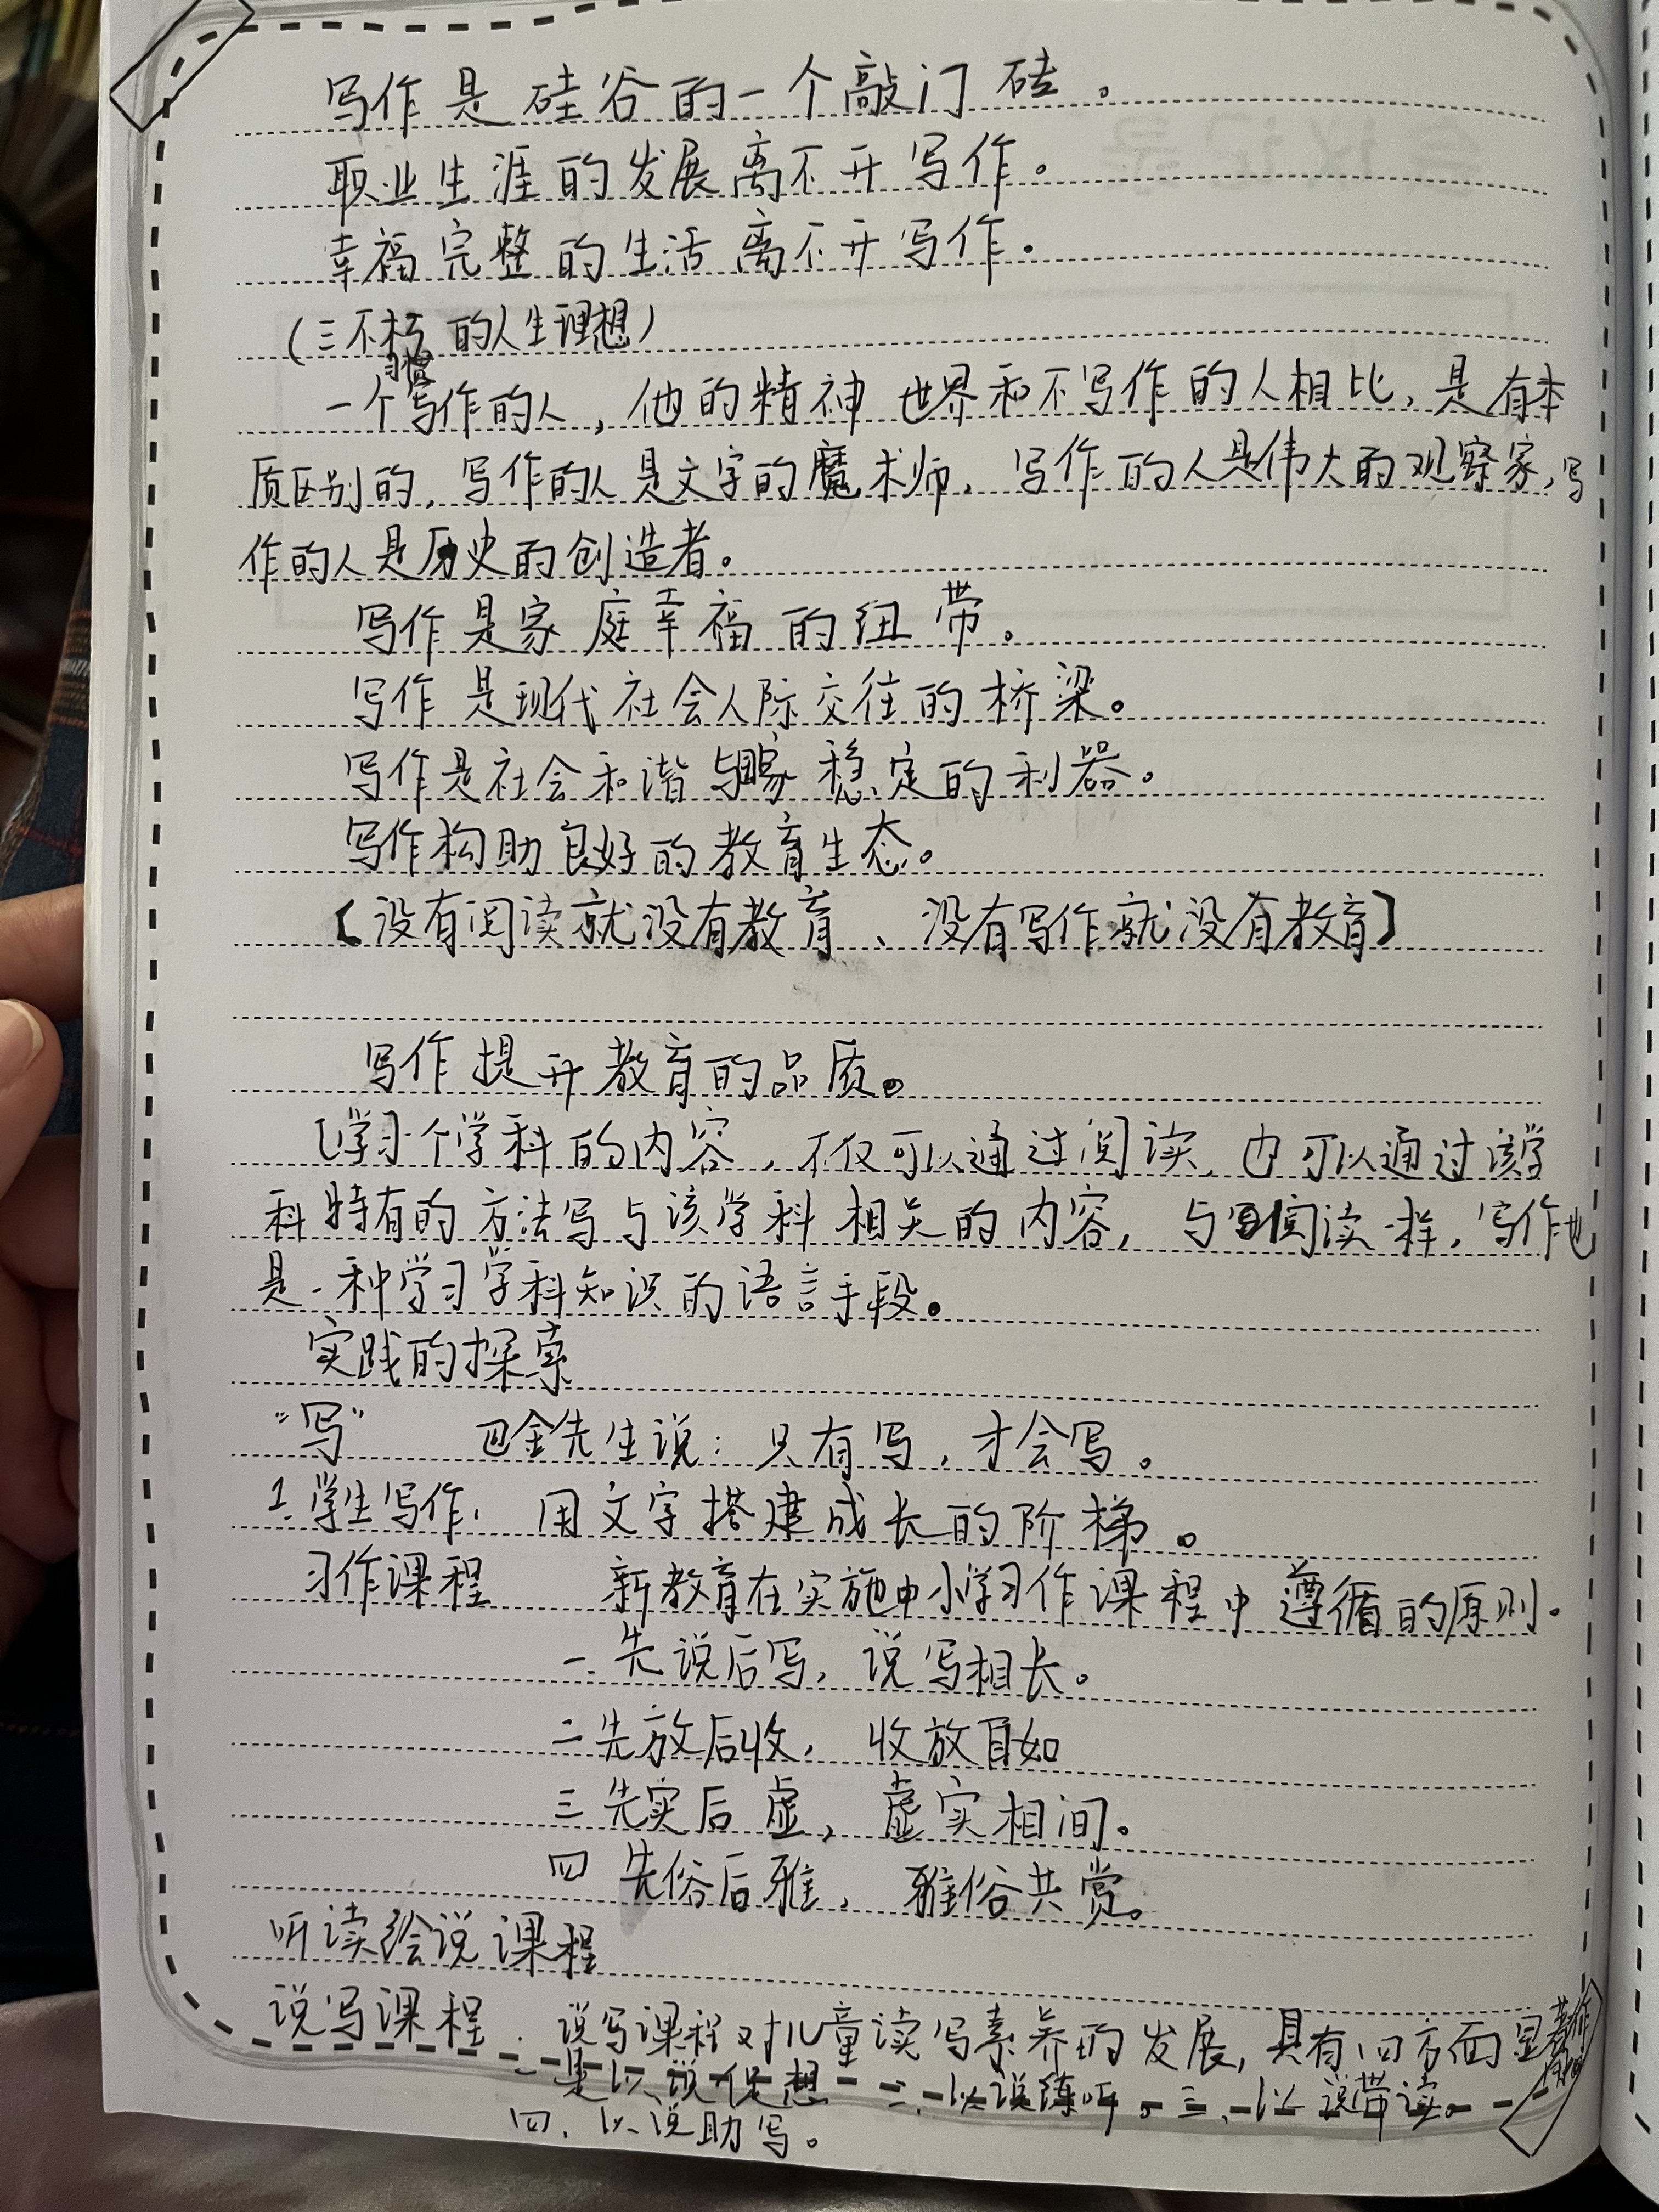 写作是硅谷的一个敲门砖。
职业生涯的发展离不开写作。
幸福完整的生活离不开写作。
(三不朽的人生理想)
习惯
一个写作的人，他的精神世界和不写作的人相比，是有本
质区别的，写作的人是文字的魔术师，写作的人是伟大的观察家，写
作的人是历史的创造者。
写作是家庭幸福的纽带。
写作是现代社会人际交往的桥梁。
写作是社会和谐与稳定的利器。
写作构助良好的教育生态。
【没有阅读就没有教育、没有写作就没有教育】
写作提升教育的品质。
[学习一个学科的内容，不仅可以通过阅读，也可以通过该学
科特有的方法写与该学科相关的内容，与阅读一样，写作也
是一种学习学科知识的语言手段。
实践的探索
“写” 巴金先生说：只有写，才会写。
1.学生写作：用文字搭建成长的阶梯。
习作课程 新教育在实施中小学习作课程中遵循的原则.
一.先说后写，说写相长。
二先放后收，收放自如
三先实后虚，虚实相间。
四先俗后雅，雅俗共赏。
听读绘说课程
说写课程.说写课程对儿童读写素养的发展，具有四方面显著作
用
一是以说促想 二、以说练听。三、以说带读。
四、以说助写。